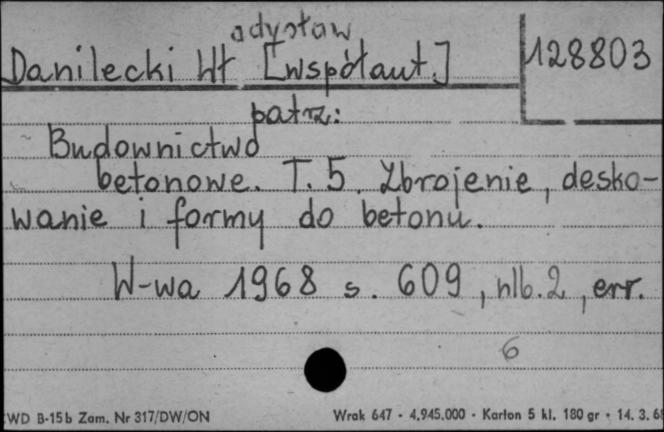 adysław
Danilecki Wł [współaut.]
128803
patrz:
Budownictwo
betonowe. T. 5. Zbrojenie, desko-
wanie i formy do betonu.
W-wa 1968 s. 609, nlb. 2, err.
6
WD B-15b Zam. Nr 317/DW/ON
Wrak 647 - 4.945.000 - Karton 5 kl. 180 gr - 14. 3. 68